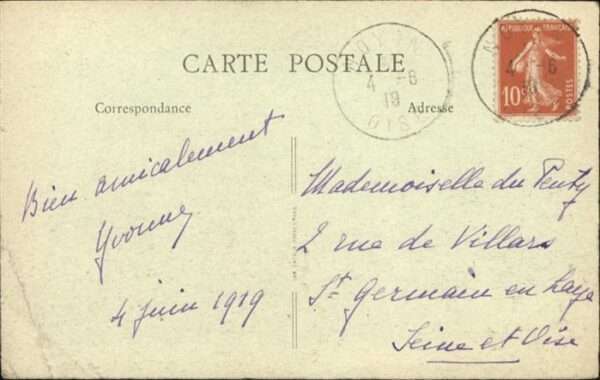 CARTE POSTALE
Correspondance
Adresse
Bien amicalement
Yvonne
4 juin 1919
Mademoiselle du
2 rue de Villars
St Germain en Laye
Seine et Oise
REPUBLIQUE FRANÇAISE
10c
POSTES
4 -6
19
4 -6